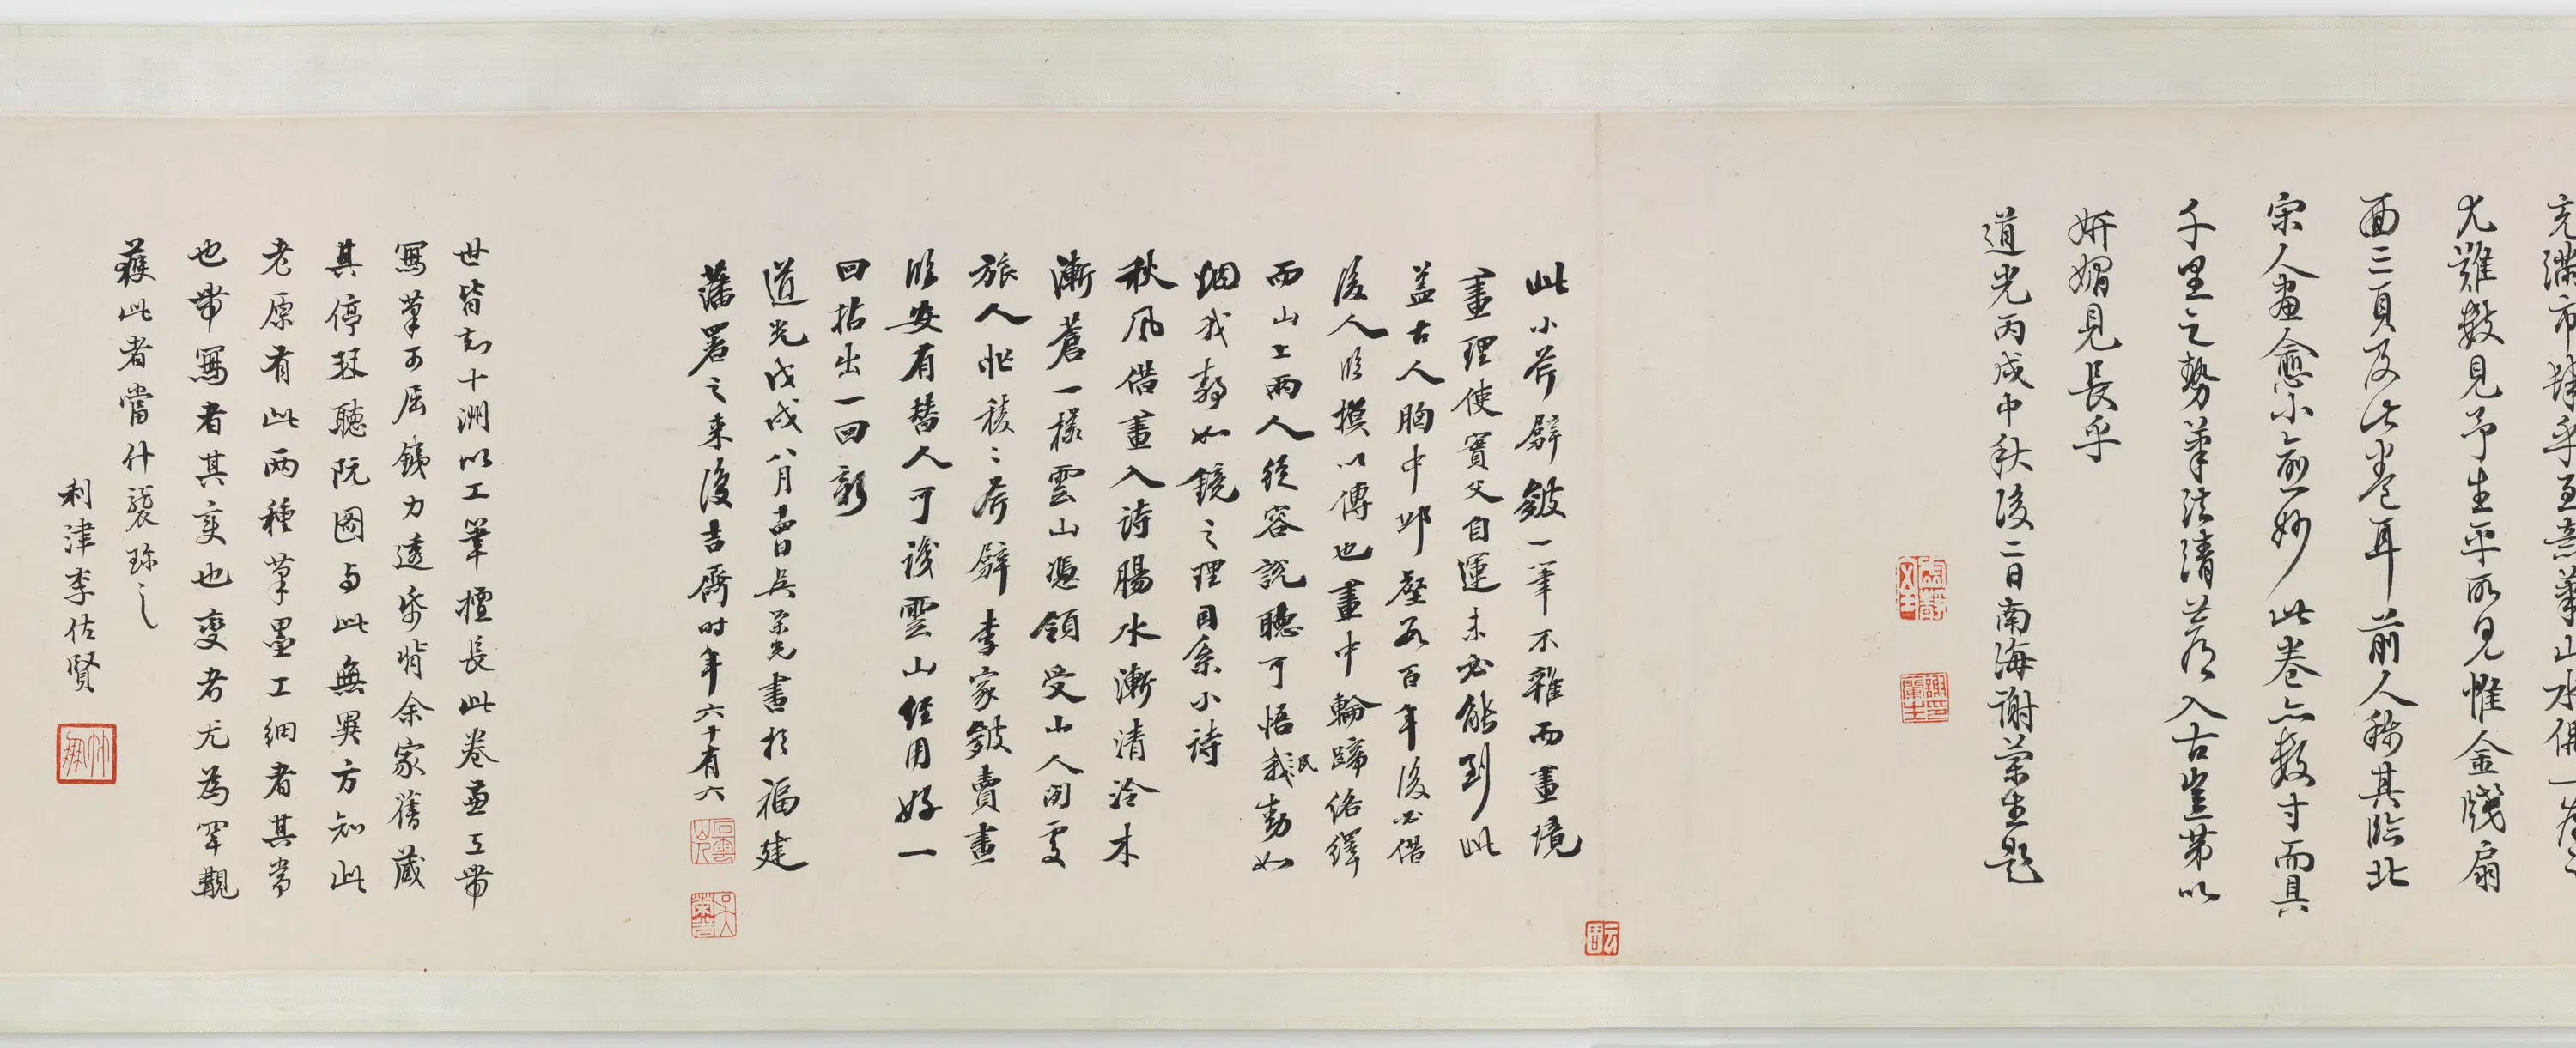 充滿市肆乎至意筆山水偶一為之
尤難數見予生平所見惟金牋扇
面三頁及此卷耳前人稱其臨北
宋人畫愈小愈妙此卷亦數寸而具
千里之勢筆法清蒼入古豈第以
妍媚見長乎
道光丙戌中秋後二日南海謝蘭生題
此小斧劈皴一筆不雜而畫境
畫理使實父自運未必能到此
蓋古人胸中邱壑五百年後必借
後人臨摸以傳也畫中輪蹄絡繹
而山上兩人從容說聽可悟民動如
烟我靜如鏡之理因系小詩
秋風借畫入詩腸水漸清泠木
漸蒼一樣雲山憑領受山人閒處
旅人忙稜〻斧劈李家皴賣畫
臨安有替人可識雲山經用好一
回拈出一回新
道光戊戌八月吳榮光書於福建
藩署之來復吉齋時年六十有六
世皆知十洲以工筆擅長此卷兼工帶
寫筆可屈鐵力透紙背余家舊藏
其停琴聽阮圖与此無異方知此
老原有此兩種筆墨工細者其常
也帶寫者其變也變者尤為罕覯
獲此者當什襲珍之
利津李佐賢